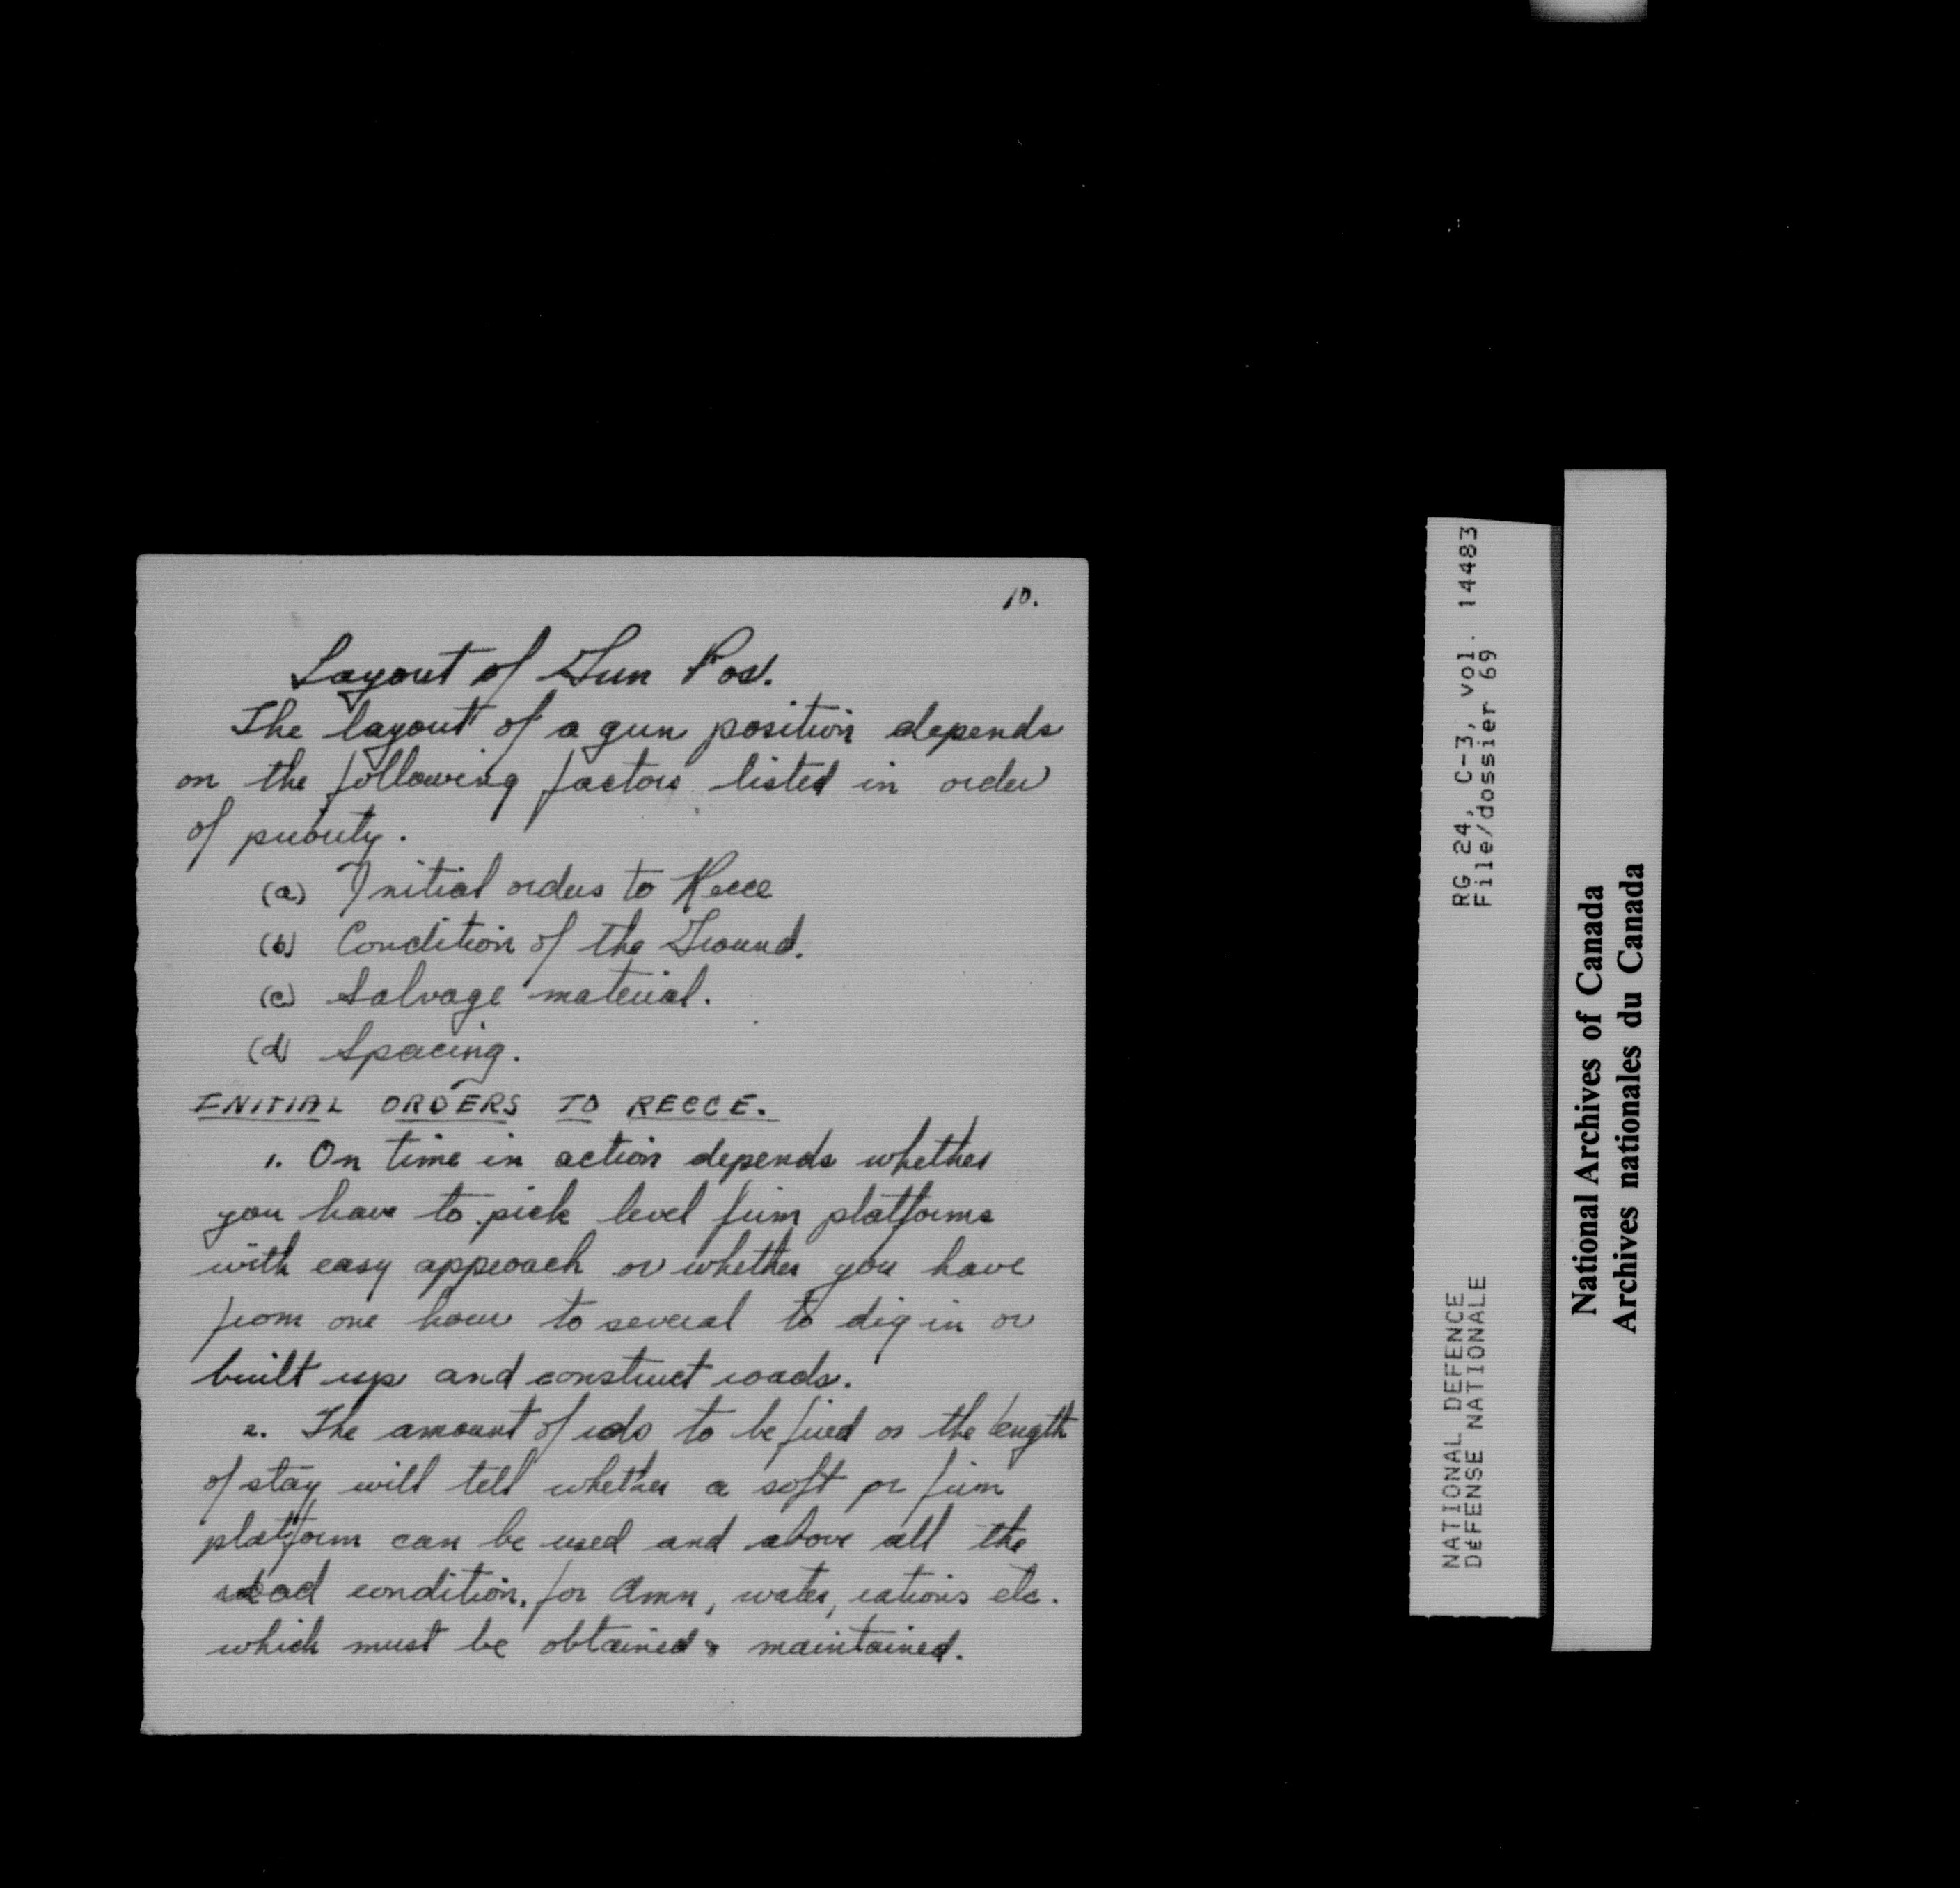 10.
Layout of Gun Pos.
The layout of a gun position depends
on the following factors listed in order
of priority.
(a) Initial orders to Recce
(b) Condition of the Ground.
(c) Salvage material.
(d) Spacing.
INITIAL ORDERS TO RECCE.
1. On time in action depends whether
you have to pick level firm platforms
with easy approach or whether you have
from one hour to several to dig in or
built up and construct roads.
2. The amount of rds to be fired or the length
of stay will tell whether a soft or firm
platform can be used and above all the
road condition, for Amn, water, rations etc.
which must be obtained & maintained.
RG 24, C-3, vol. 14483
File/dossier 69
NATIONAL DEFENCE
DÉFENSE NATIONALE
National Archives of Canada
Archives nationales du Canada